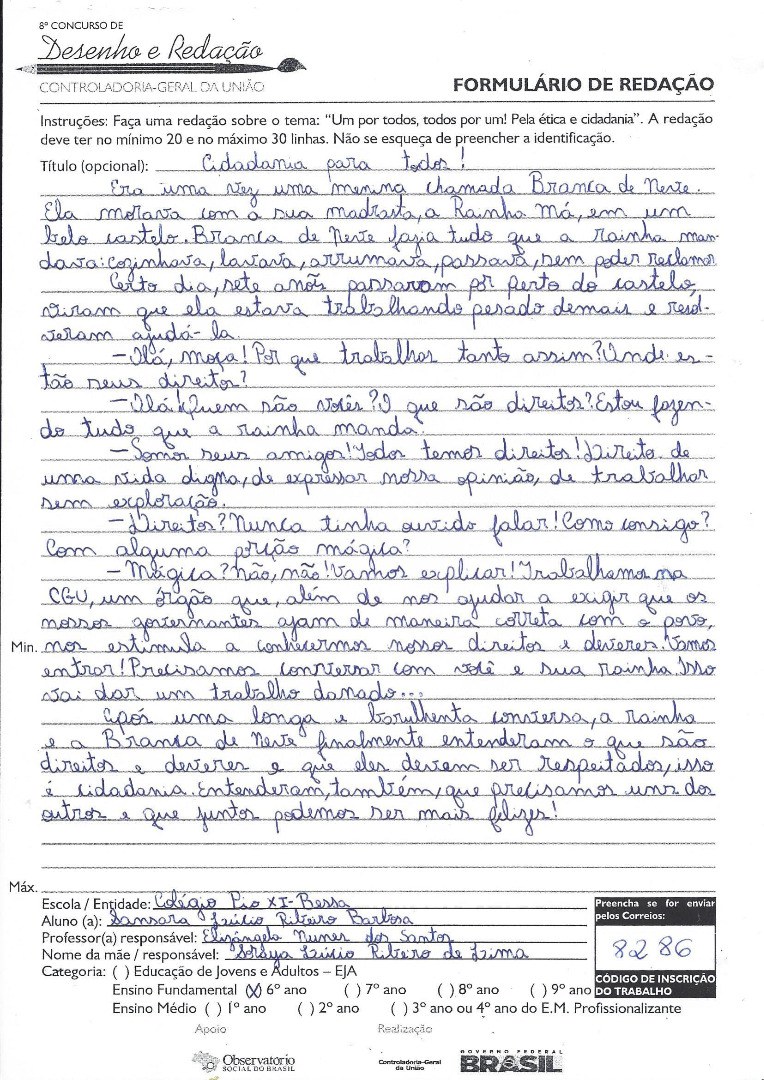 8º CONCURSO DE
Desenho e Redação
CONTROLADORIA-GERAL DA UNIÃO
FORMULÁRIO DE REDAÇÃO
Instruções: Faça uma redação sobre o tema: “Um por todos, todos por um! Pela ética e cidadania”. A redação
deve ter no mínimo 20 e no máximo 30 linhas. Não se esqueça de preencher a identificação.
Título (opcional): Cidadania para todos!
Era uma vez uma menina chamada Branca de Neve.
Ela morava com a sua madrasta, a Rainha Má, em um
belo castelo. Branca de Neve fazia tudo que a rainha man-
dava: cozinhava, lavava, arrumava, passava, sem poder reclamar.
Certo dia, sete anões passaram por perto do castelo,
viram que ela estava trabalhando pesado demais e resol-
veram ajudá-la.
– Olá, moça! Por que trabalhas tanto assim? Onde es-
tão seus direitos?
– Olá! Quem são vocês? O que são direitos? Estou fazen-
do tudo que a rainha manda.
– Somos seus amigos! Todos temos direitos! Direito de
uma vida digna, de expressar nossa opinião, de trabalhar
sem exploração.
– Direitos? Nunca tinha ouvido falar! Como consigo?
Com alguma porção mágica?
– Mágica? Não, não! Vamos explicar! Trabalhamos na
CGU, um órgão que, além de nos ajudar a exigir que os
nossos governantes ajam de maneira correta com o povo,
Min. nos estimula a conhecermos nossos direitos e deveres. Vamos
entrar! Precisamos conversar com você e sua rainha. Isso
vai dar um trabalho danado...
Após uma longa e barulhenta conversa, a rainha
e a Branca de Neve finalmente entenderam o que são
direitos e deveres e que eles devem ser respeitados, isso
é cidadania. Entenderam, também, que precisamos uns dos
outros e que juntos podemos ser mais felizes!
Máx.
Escola / Entidade: Colégio Pio XI - Bessa
Aluno (a): Sansara Lúcio Ribeiro Barbosa
Professor(a) responsável: Elizângela Nunes dos Santos
Nome da mãe / responsável: Soraya Lúcio Ribeiro de Lima
Preencha se for enviar
pelos Correios:
8286
CÓDIGO DE INSCRIÇÃO
DO TRABALHO
Categoria: ( ) Educação de Jovens e Adultos – EJA
Ensino Fundamental (X) 6º ano ( ) 7º ano ( ) 8º ano ( ) 9º ano
Ensino Médio ( ) 1º ano ( ) 2º ano ( ) 3º ano ou 4º ano do E.M. Profissionalizante
Apoio
Realização
Observatório
SOCIAL DO BRASIL
Controladoria-Geral
da União
GOVERNO FEDERAL
BRASIL